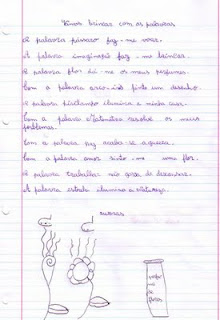 Vamos brincar com as palavras
A palavra pássaro faz-me voar.
A palavra imaginação faz-me brincar.
A palavra flor dá-me os meus perfumes.
Com a palavra arco-íris pinto um desenho.
A palavra pirilampo ilumina a minha casa.
Com a palavra Matemática resolvo os meus
problemas.
Com a palavra paz acaba-se a guerra.
Com a palavra amor sinto-me uma flor.
A palavra trabalhar não gosta de descansar.
A palavra estrela ilumina a Natureza.